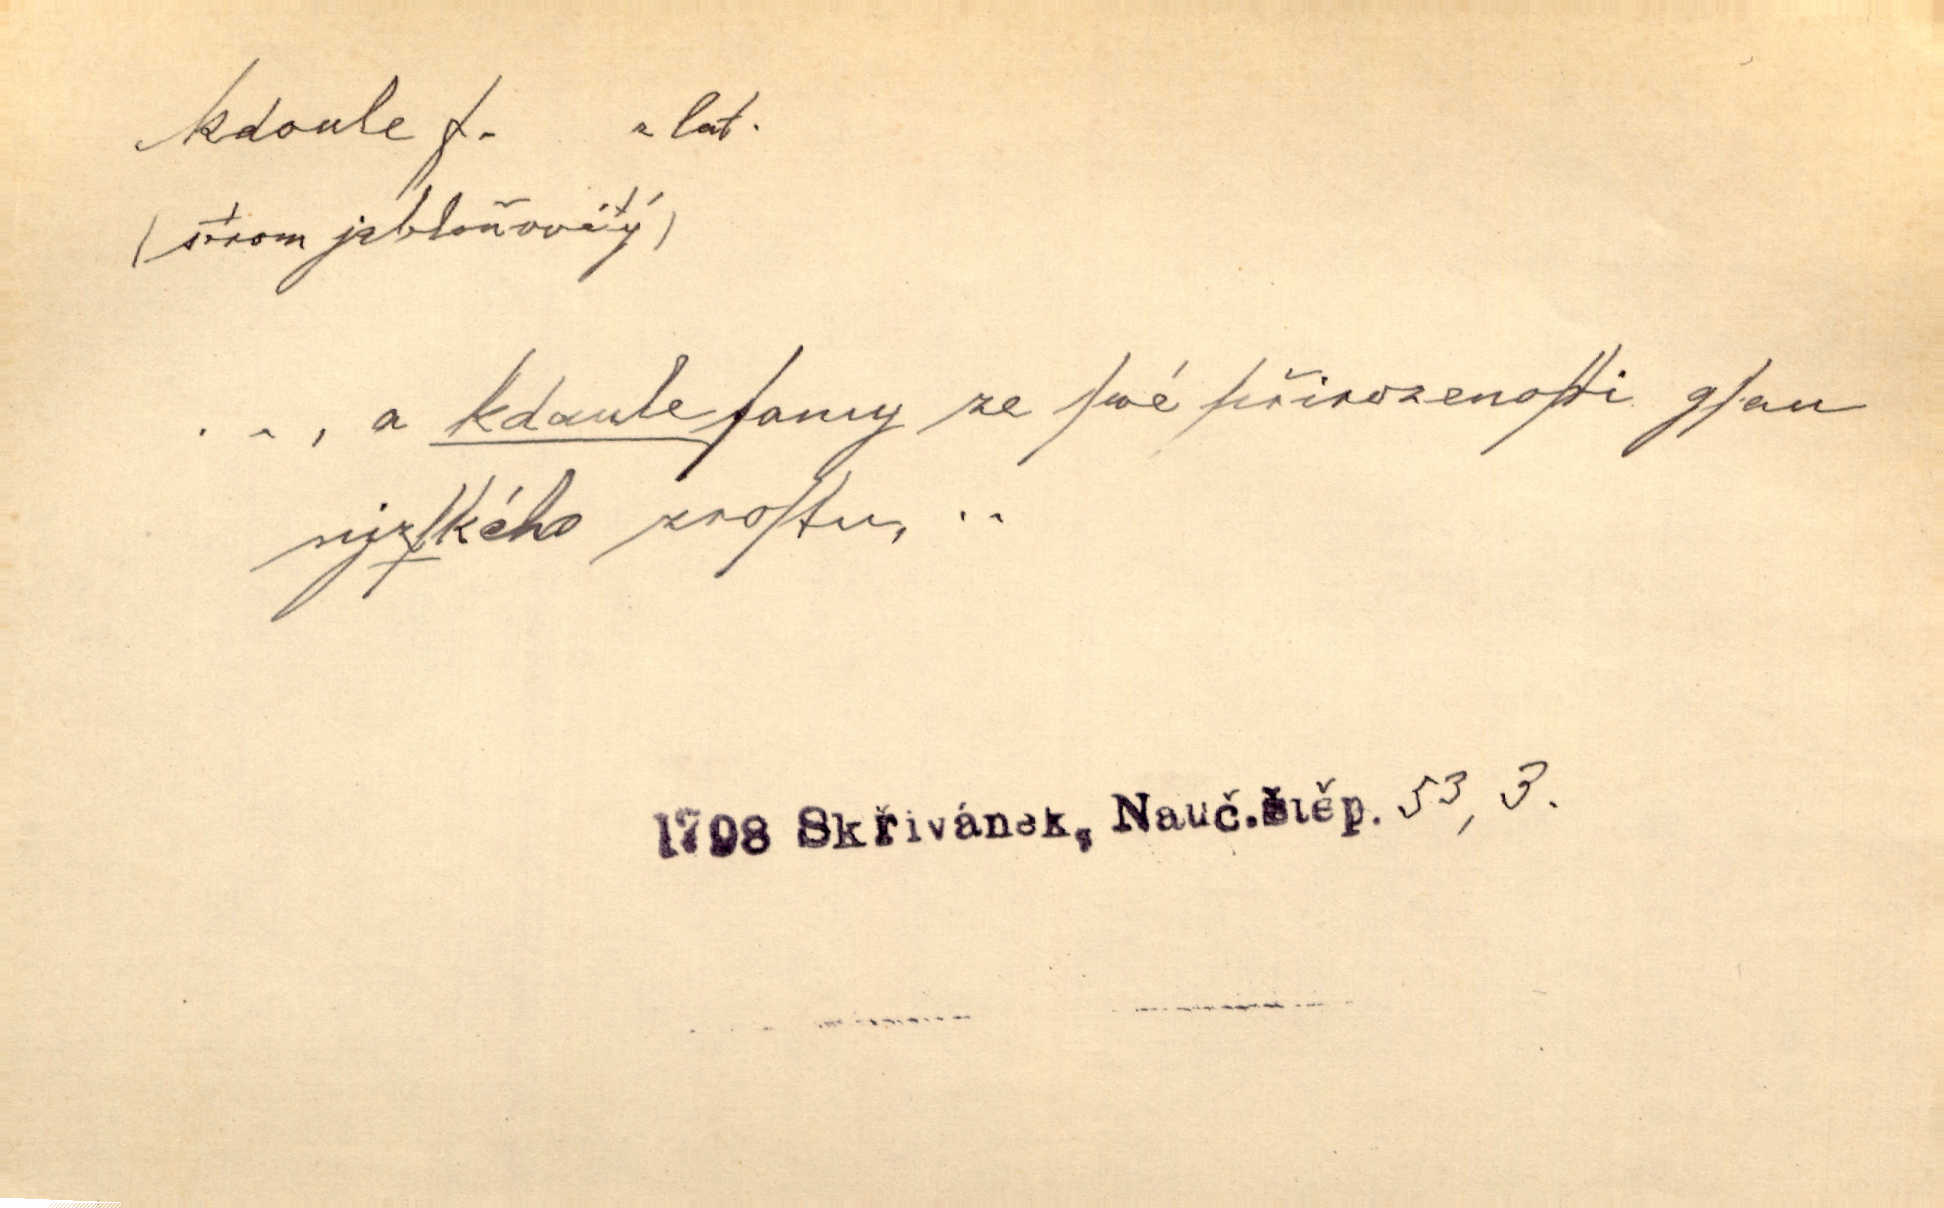 kdoule f. z lat.
(strom jabloňovitý)
..., a kdaule samy ze swé přirozenosti gsau
nijzského zrostu, ..
1798 Skřivánek, Nauč.štěp. 53, 3.